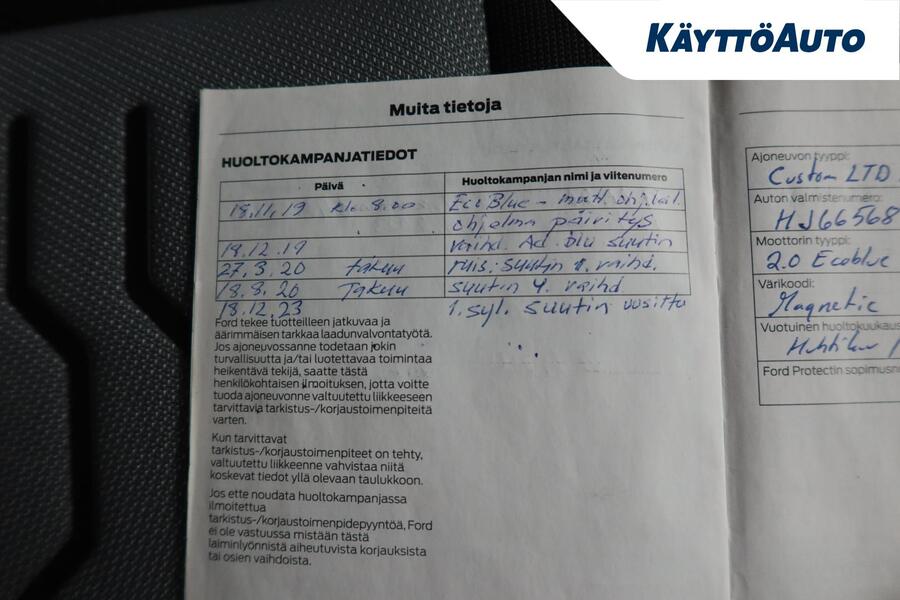 KÄYTTÖAUTO
Muita tietoja
HUOLTOKAMPANJATIEDOT
Päivä Huoltokampanjan nimi ja viitenumero
18.11.19 klo 8.00 EcoBlue - moott. ohj.lait.
ohjelma päivitys
18.12.19 vaihd. Ad Blu suutin
27.3.20 takuu ruis. suutin 1. vaihd.
18.8.20 Takuu suutin 4. vaihd
18.12.23 1. syl. suutin uusittu
Ford tekee tuotteilleen jatkuvaa ja
äärimmäisen tarkkaa laadunvalvontatyötä.
Jos ajoneuvossanne todetaan jokin
turvallisuutta ja/tai luotettavaa toimintaa
heikentävä tekijä, saatte tästä
henkilökohtaisen ilmoituksen, jotta voitte
tuoda ajoneuvonne valtuutettu liikkeeseen
tarvittavia tarkistus-/korjaustoimenpiteitä
varten.
Kun tarvittavat
tarkistus-/korjaustoimenpiteet on tehty,
valtuutettu liikkeenne vahvistaa niitä
koskevat tiedot yllä olevaan taulukkoon.
Jos ette noudata huoltokampanjassa
ilmoitettua
tarkistus-/korjaustoimenpidepyyntöä, Ford
ei ole vastuussa mistään tästä
laiminlyönnistä aiheutuvista korjauksista
tai osien vaihdoista.
Ajoneuvon tyyppi:
Custom LTD
Auton valmistenumero:
HJ66568
Moottorin tyyppi:
2.0 Ecoblue
Värikoodi:
Magnetic
Vuotuinen huoltokuukaus
Huhtikuu
Ford Protectin sopimusn